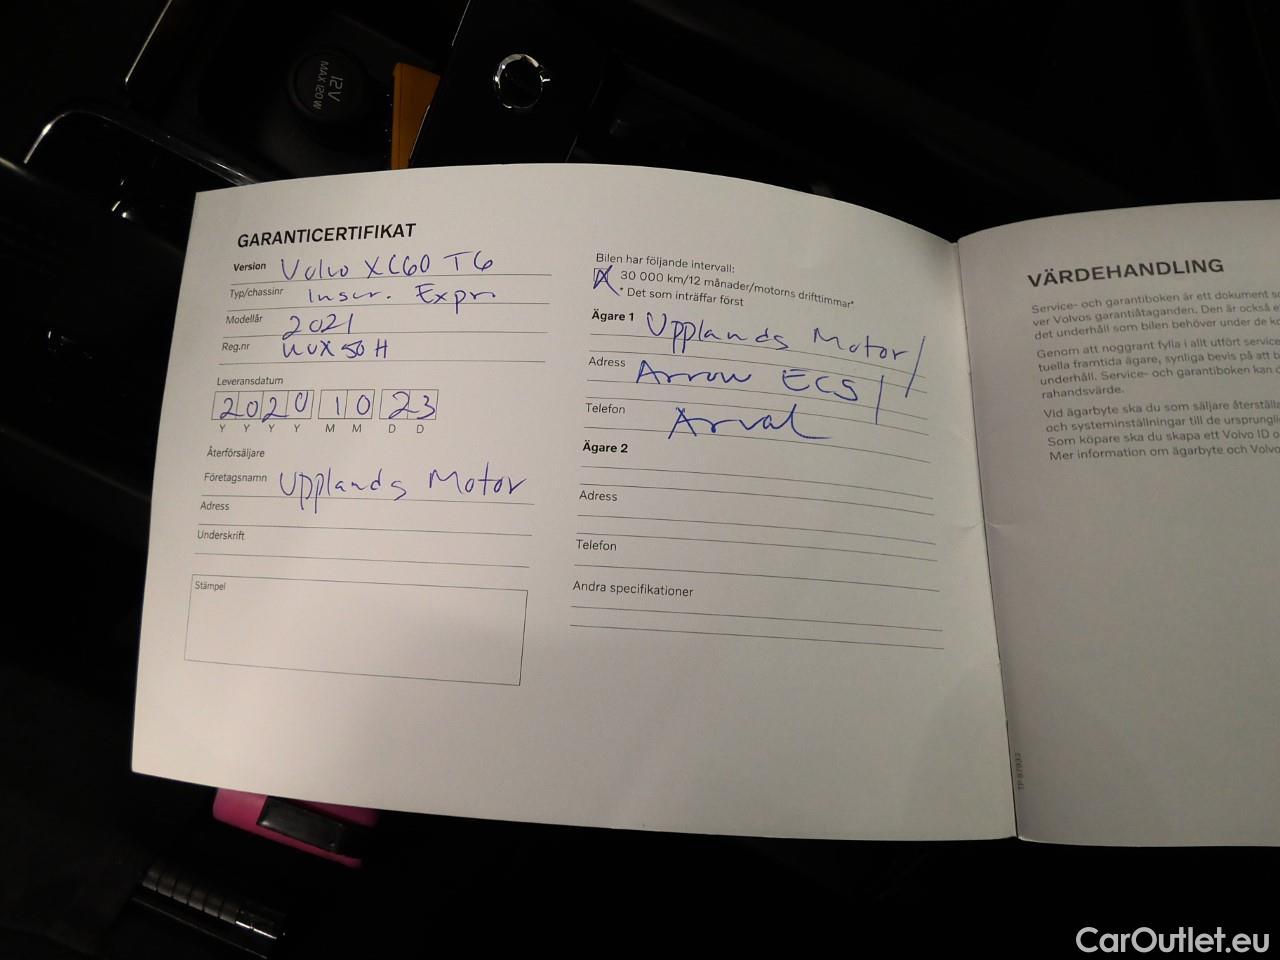 12V
MAX 120 W
GARANTICERTIFIKAT
Version Volvo XC60 T6
Typ/chassinr Inscr. Expr
Modellår 2021
Reg.nr UUX 50 H
Leveransdatum
2020 10 23
Y Y Y Y M M D D
Återförsäljare
Företagsnamn Upplands Motor
Adress
Underskrift
Stämpel
Bilen har följande intervall:
X 30 000 km/12 månader/motorns drifttimmar*
* Det som inträffar först
Ägare 1 Upplands Motor/
Adress Arrow ECS/
Telefon Arval
Ägare 2
Adress
Telefon
Andra specifikationer
VÄRDEHANDLING
Service- och garantiboken är ett dokument
ver Volvos garantiåtaganden. Den är också
det underhåll som bilen behöver under de
Genom att noggrant fylla i allt utfört
tuella framtida ägare, synliga bevis på att
underhåll. Service- och garantiboken kan
rahandsvärde.
Vid ägarbyte ska du som säljare
och systeminställningar till de
Som köpare ska du skapa ett Volvo ID
Mer information om ägarbyte och
CarOutlet.eu